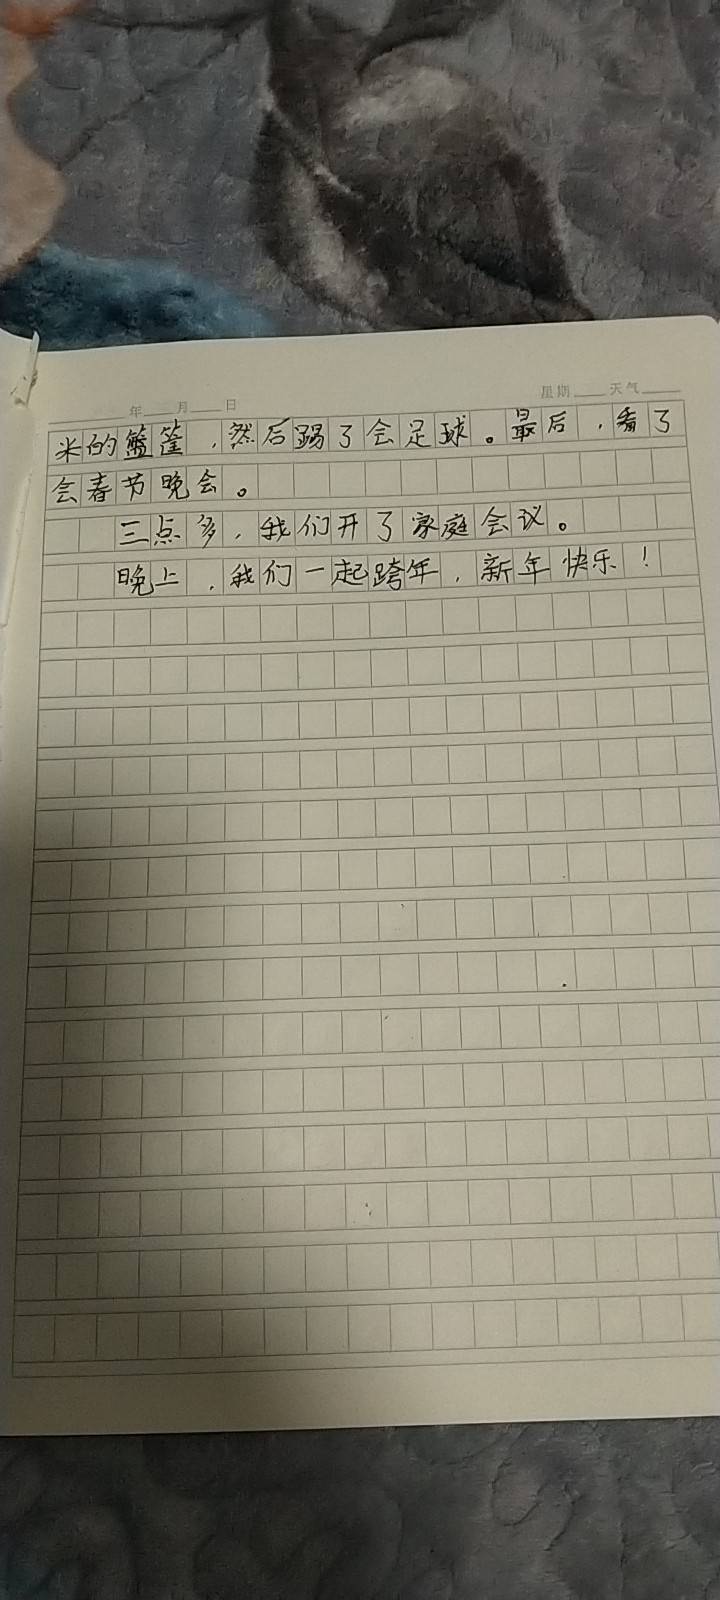 年 月 日 星期 天气
米的篮筐，然后踢了会足球。最后，看了
会春节晚会。
三点多，我们开了家庭会议。
晚上，我们一起跨年，新年快乐！